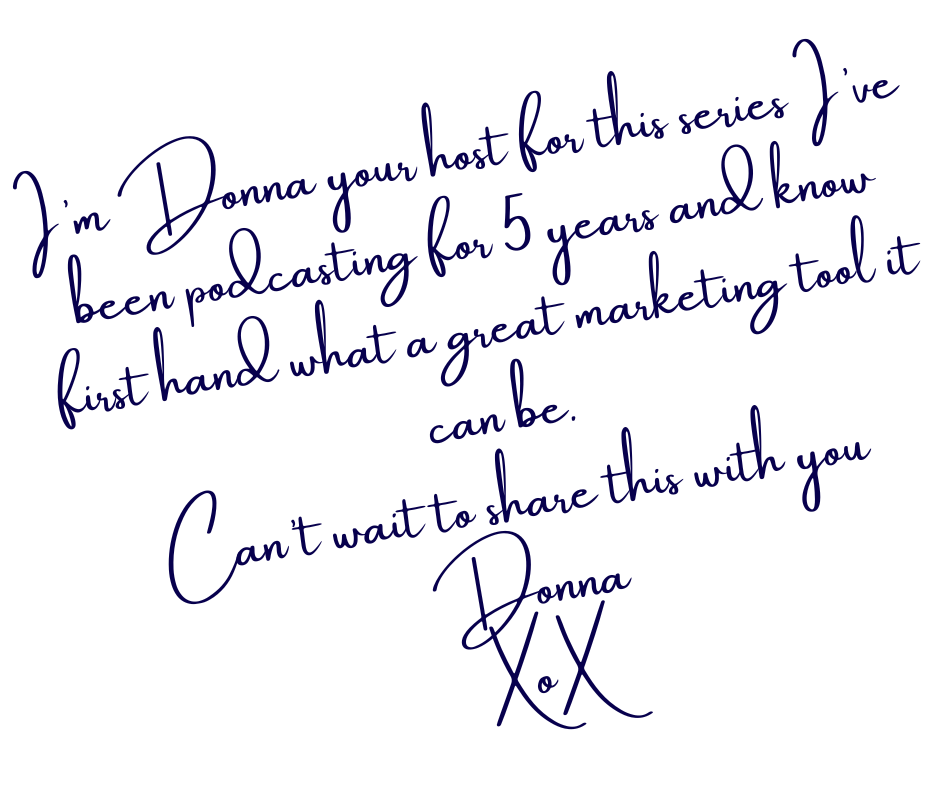 I'm Donna your host for this series I've
been podcasting for 5 years and know
first hand what a great marketing tool it
can be.
Can't wait to share this with you
Donna
XoX